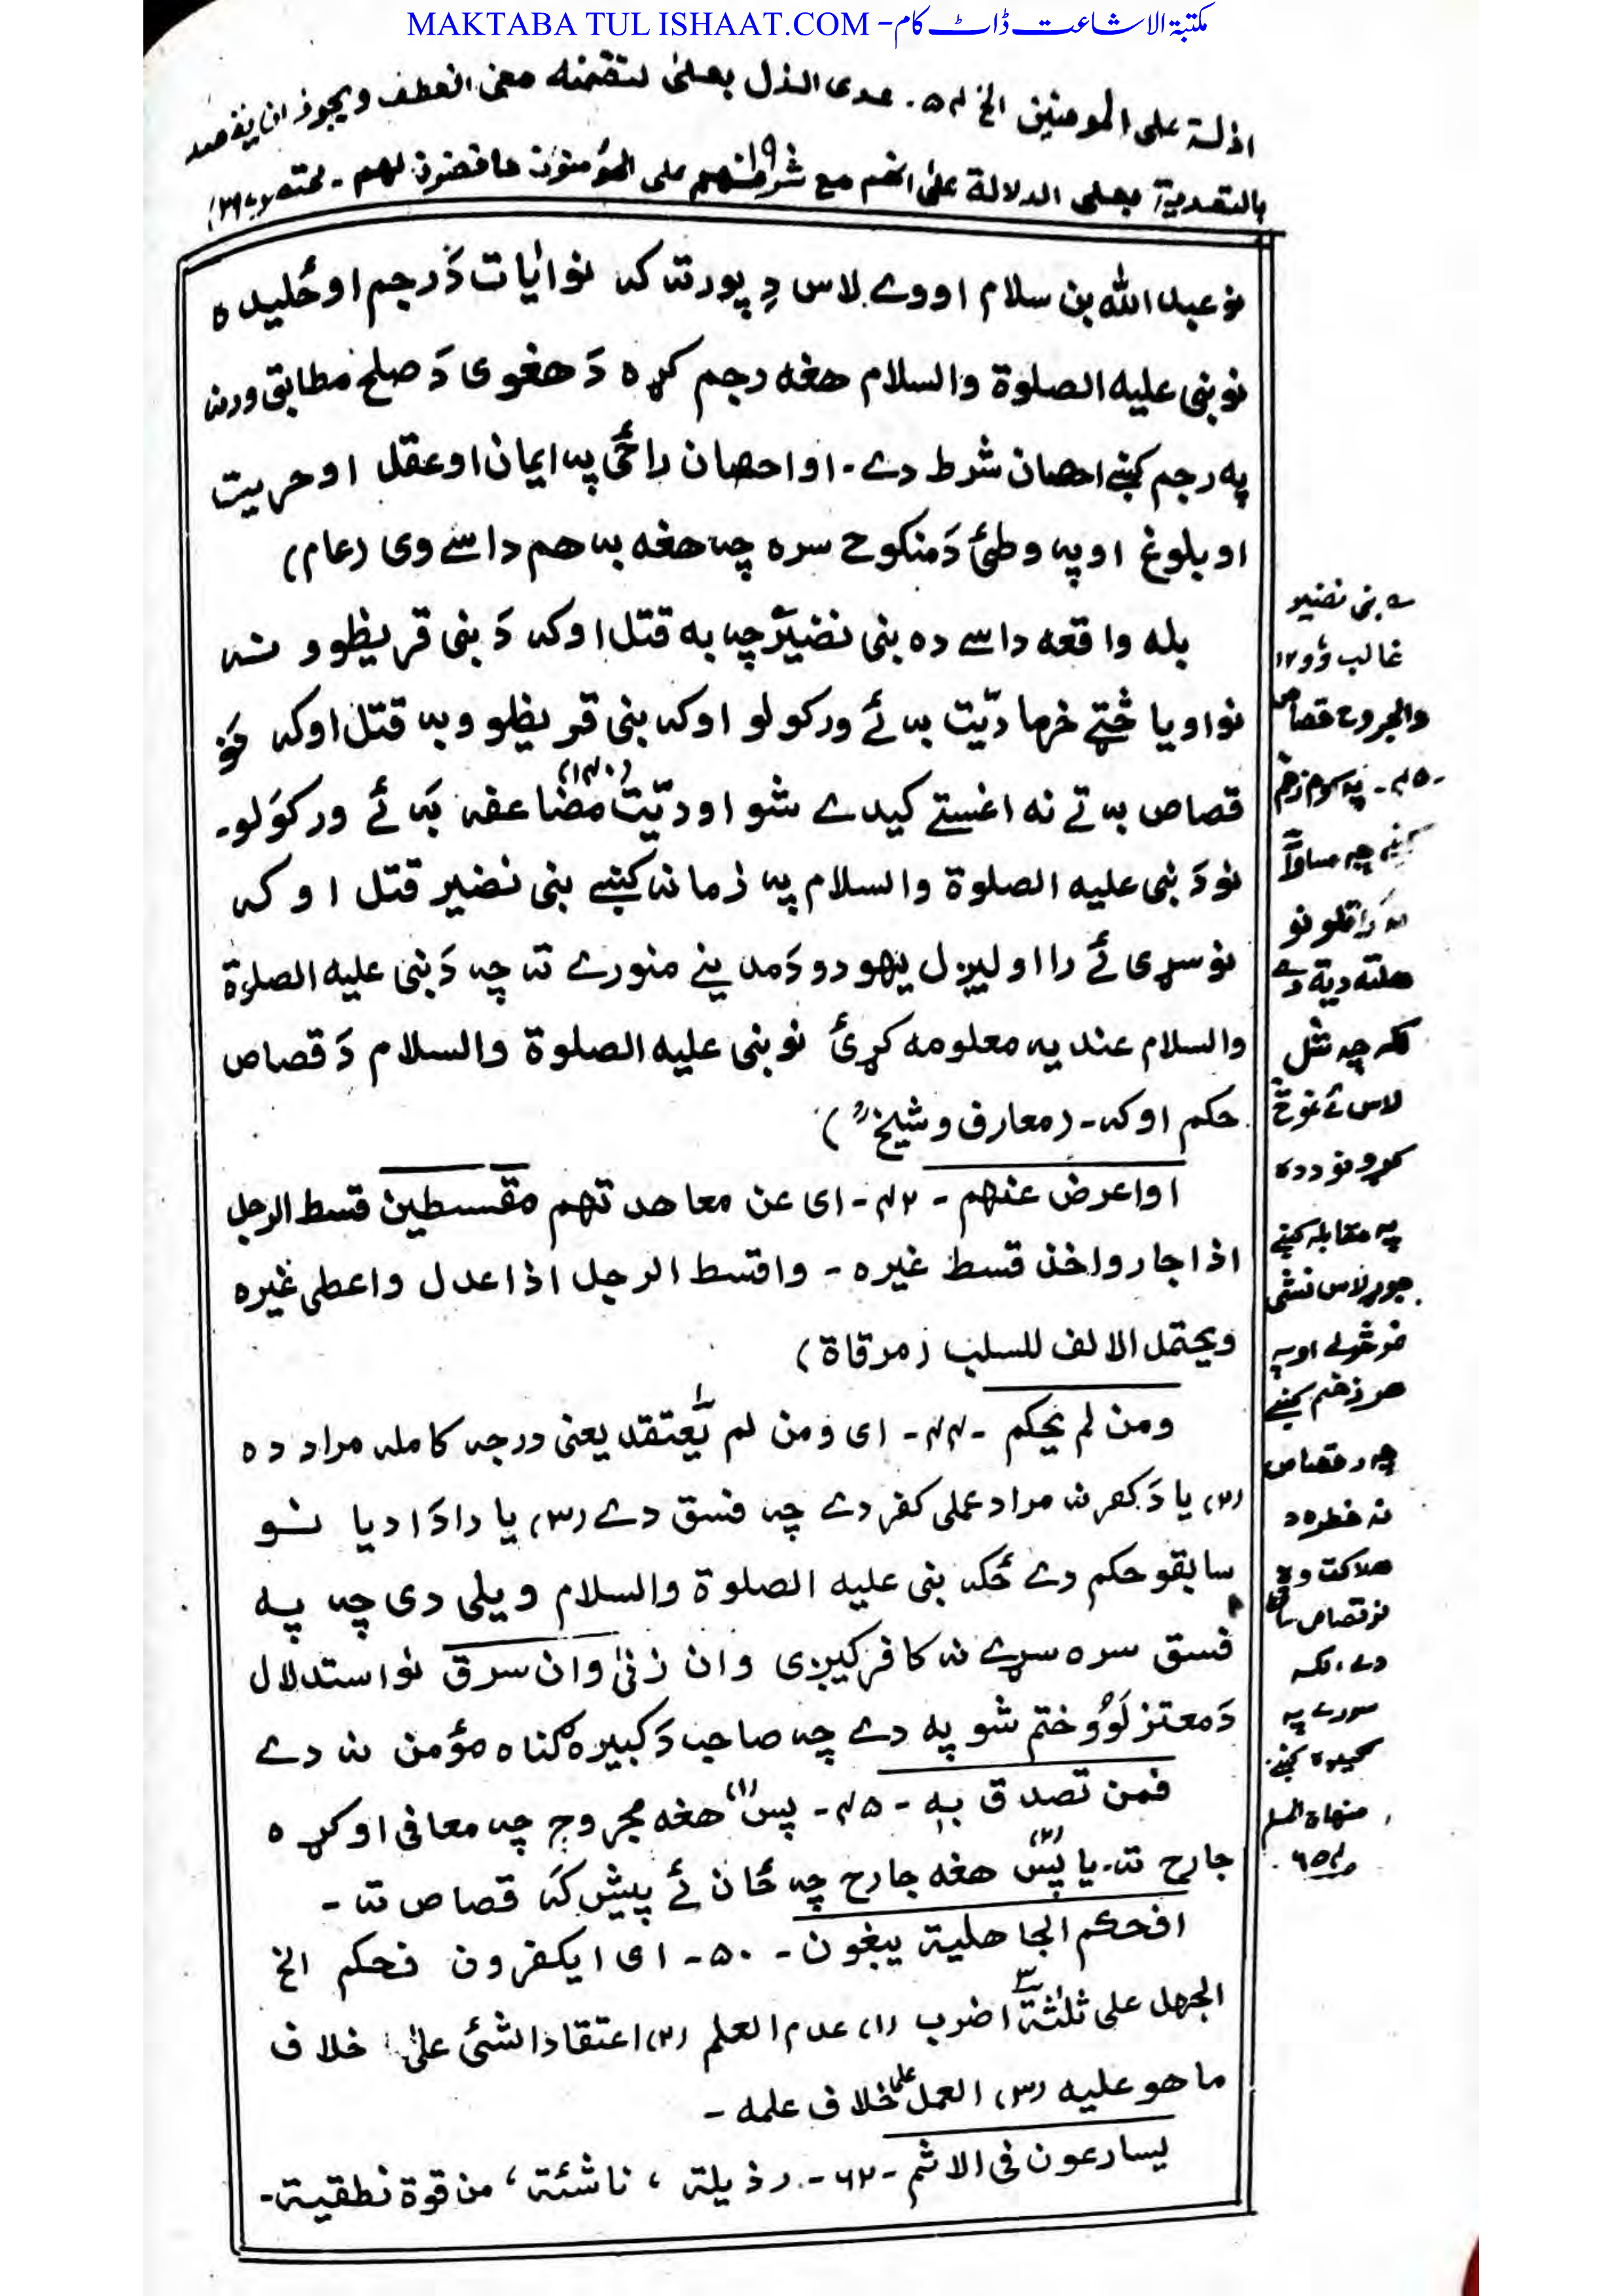 MAKTABA TUL ISHAAT.COM -مکتبة الاشاعت ڈاٹ کام
اذلة على المومنين الخ ۵۴. عدى الذل بعلىٰ لتضمنه معنى العطف ويجوز ان يقصد
بالتعدية بعلى الدلالة علىٰ انهم مع شرافتهم على المؤمنون خافضون لهم - مختصر
نو عبد الله بن سلام اووے لاس دِ پورته که نو اٰیات دَ رجم اوځلیده
نو نبی علیه الصلوة والسلام هغه رجم کړه دَ هغوی دَ صلح مطابق ورنه
په رجم کښے احصان شرط دے - او احصان راځی په ایمان او عقل او حریت
او بلوغ او په وطئ دَ منکوحے سره چه هغه به هم داسے وی (عام)
بله واقعه داسے ده بنی نضیرؔ چه به قتل اوکه دَ بنی قریظو و نه
نو اویا څتے خرما دیّت به ئے ورکولو اوکه بنی قریظو و به قتل اوکه خو
قصاص به تے نه اغستے کیدے شو او دیّت مضاعفه (۱۴۰) به ئے ورکوَلو -
نو دَ نبی علیه الصلوة والسلام په زمانه کښے بنی نضیر قتل اوکه
نو سړی ئے را اولیږل یهودو دَ مدینے منورے ته چه دَ نبی علیه الصلوة
والسلام عندیه معلومه کړئ نو نبی علیه الصلوة والسلام دَ قصاص
حکم اوکه - (معارف و شیخ ؒ)
او اعرض عنهم - ۴۲ - ای عن معاهدتهم مقسطین قسط الرجل
اذا جار واخذ قسط غیره - واقسط الرجل اذا عدل واعطی غیره
ویحتمل الالف للسلب (مرقاة)
ومن لم یحکم - ۴۴ - ای ومن لم یعتقد یعنی درجه کامله مراد ده
(۲) یا دَ کفر نه مراد عملی کفر دے چه فسق دے (۳) یا دا دَ ادیانو
سابقو حکم دے ځکه نبی علیه الصلوة والسلام ویلی دی چه په
فسق سره سړے نه کافر کیږی وان زنیٰ وان سرق نو استدلال
دَ معتزلَوُ ختم شو په دے چه صاحب دَ کبیره ګناه مؤمن نه دے
فمن تصدق به - ۴۵ - پس (۱) هغه مجروح چه معافی اوکړه
جارح ته - یا پس (۲) هغه جارح چه ځان ئے پیش که قصاص ته -
افحکم الجاهلیة یبغون - ۵۰ - ای ایکفرون فحکم الخ
الجهل علی ثلٰثة اضرب (۱) عدم العلم (۲) اعتقاد الشئ علیٰ خلاف
ما هو علیه (۳) العمل علی خلاف علمه -
یسارعون فی الاثم - ۶۲ - رذیلة ، ناشئة ، من قوة نطقیة -
؎ بنی نضیر
غالب وُو ۱۲
والجروح قصاص
-۴۵- په
کښے چه مساواة
نو
هلته دیة دے
لکه چه شل
لاس ئے غوڅ
کړو نو دده
په مقابله کښے
جوړ لاس نشی
او په
هر زخم کښے
چه د قصاص
نه خطره د
هلاکت وی
نو قصاص ساقط
دے، لکه
سورے په
کښے.
منهاج المسلم